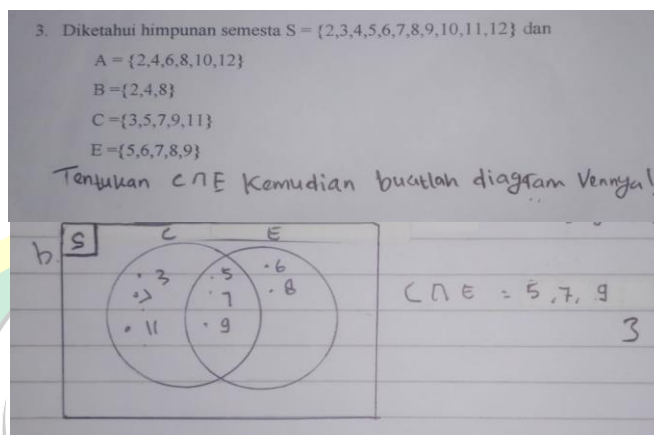 3. Diketahui himpunan semesta S = {2,3,4,5,6,7,8,9,10,11,12} dan
A = {2,4,6,8,10,12}
B ={2,4,8}
C ={3,5,7,9,11}
E ={5,6,7,8,9}
Tentukan C∩E Kemudian buatlah diagram Vennya!
b. S C E
. 3 . 5 . 6
. 7 . 8
. 11 . 9
C ∩ E = 5, 7, 9
3